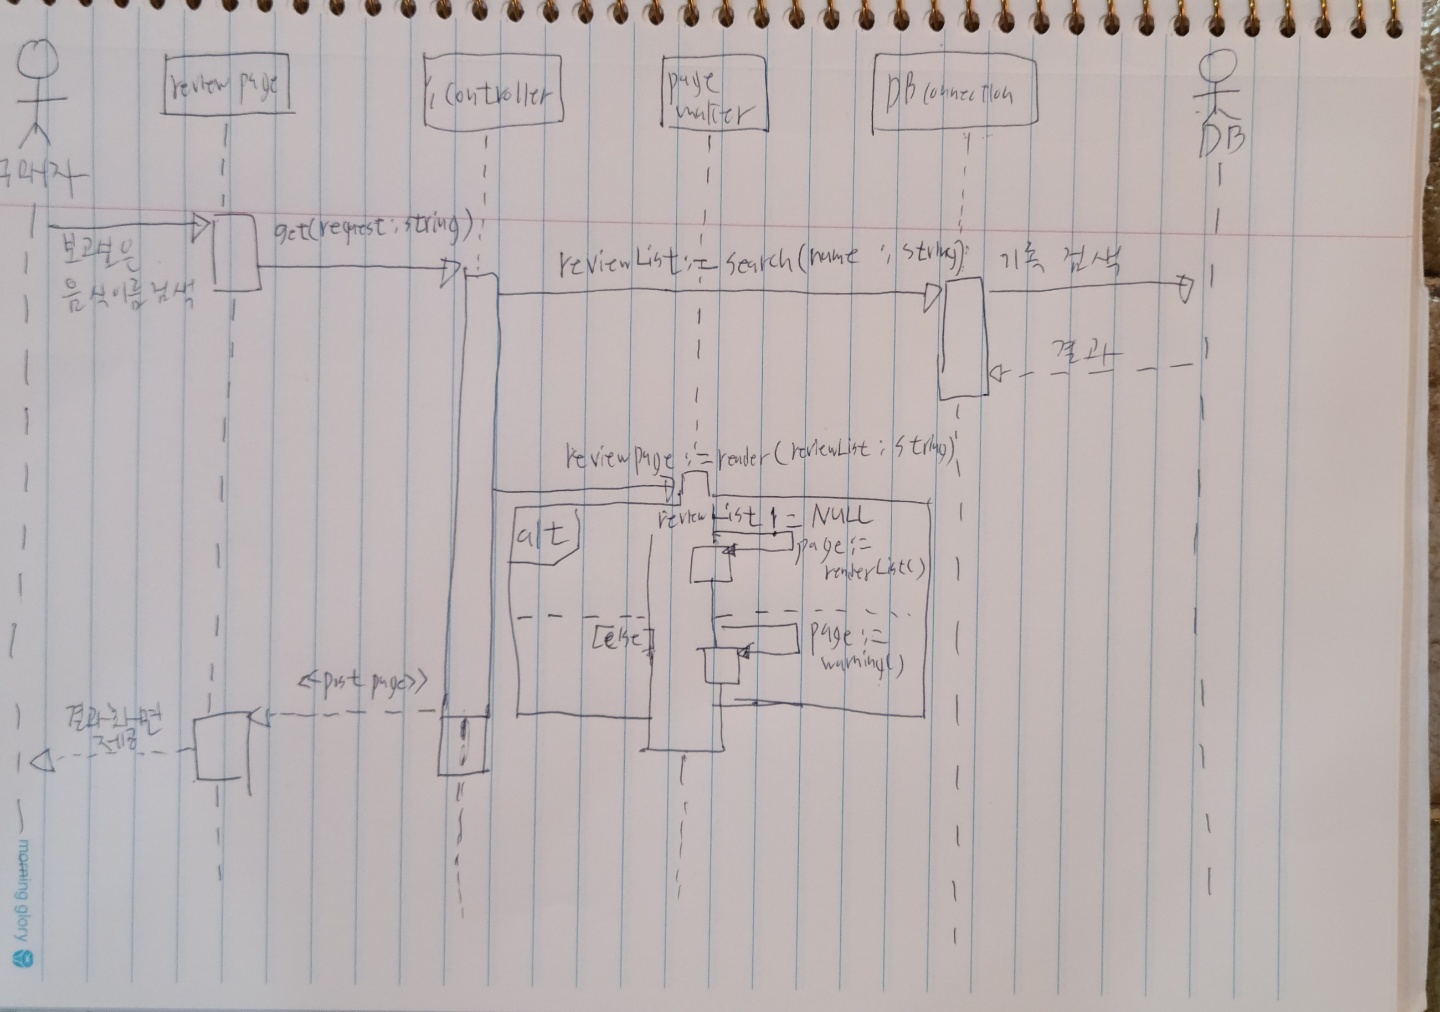 review page
: Controller
page
maker
DB connection
DB
구매자
get(request : string)
보고싶은
음식이름 검색
reviewList := search(name : string)
기록 검색
결과
review page := render(reviewList : string)
alt
review List != NULL
page :=
renderList()
[else]
page :=
warning()
<<post page>>
결과화면
제공
morning glory